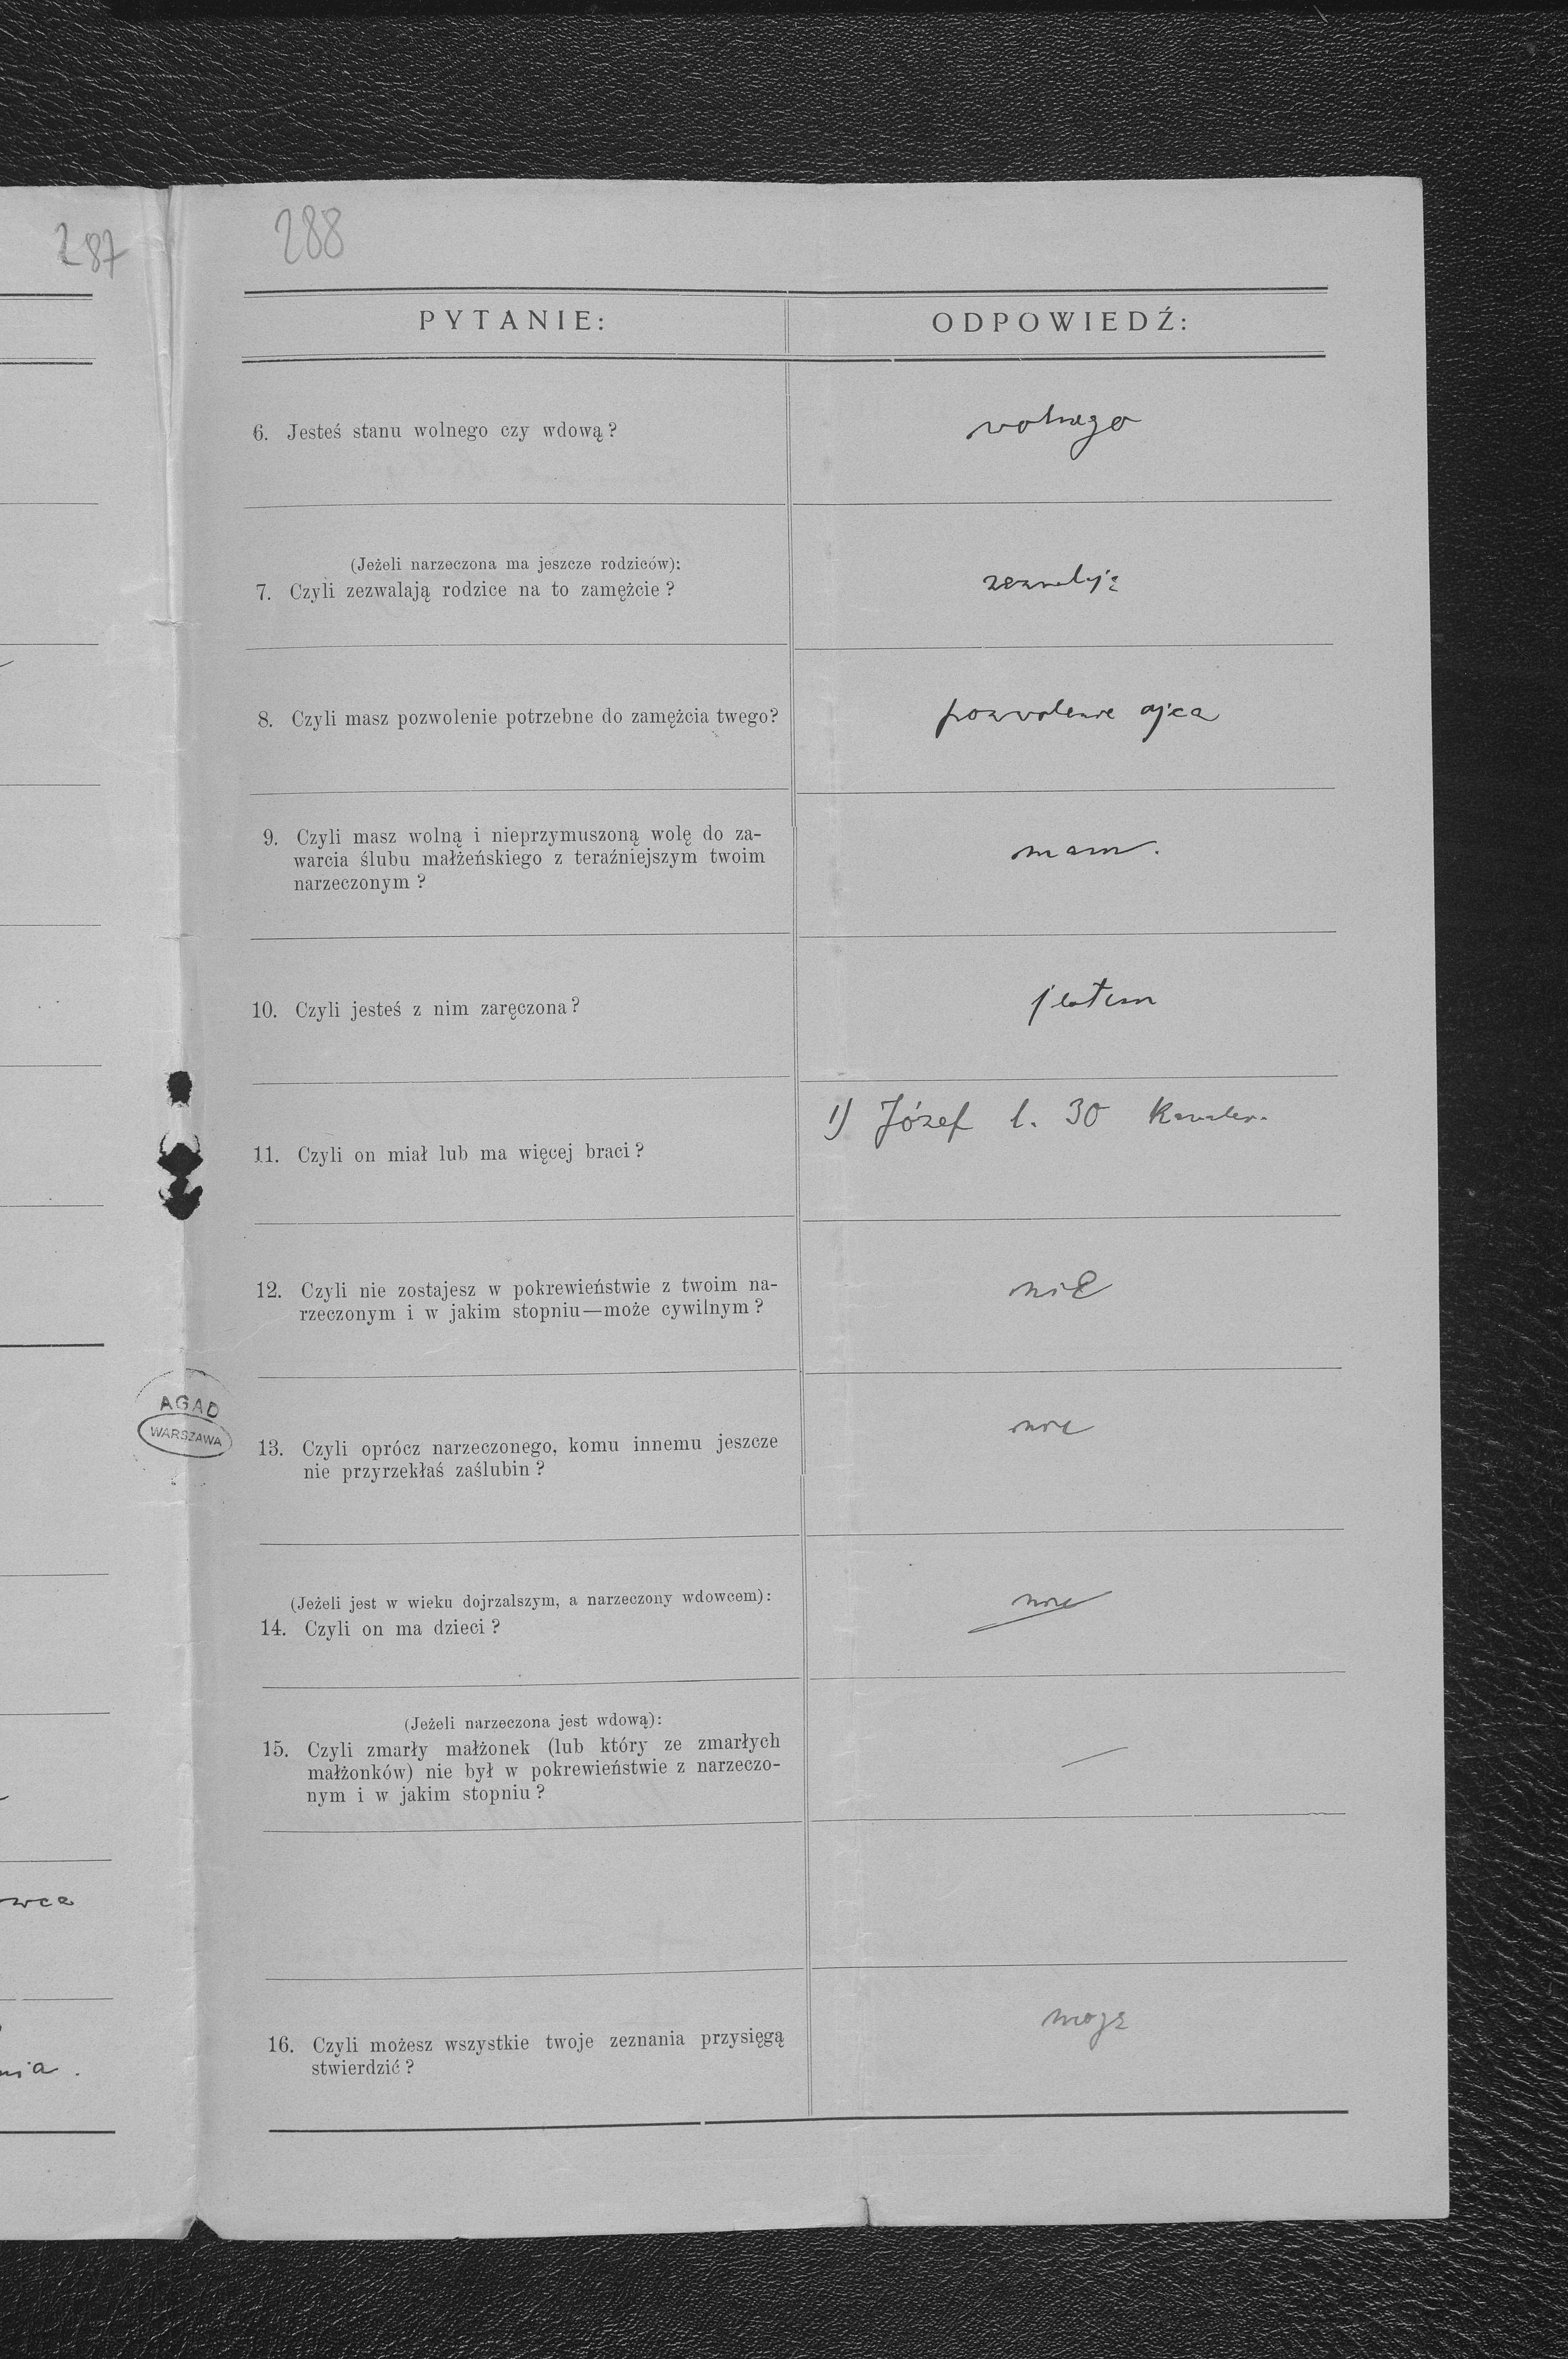 287
288
PYTANIE: ODPOWIEDŹ:
6. Jesteś stanu wolnego czy wdową? wolnego
(Jeżeli narzeczona ma jeszcze rodziców):
7. Czyli zezwalają rodzice na to zamężcie? zezwalają
8. Czyli masz pozwolenie potrzebne do zamężcia twego? pozwolenie ojca
9. Czyli masz wolną i nieprzymuszoną wolę do za-
warcia ślubu małżeńskiego z teraźniejszym twoim
narzeczonym? mam.
10. Czyli jesteś z nim zaręczona? jestem
11. Czyli on miał lub ma więcej braci? 1) Józef l. 30 Kawaler.
12. Czyli nie zostajesz w pokrewieństwie z twoim na-
rzeczonym i w jakim stopniu—może cywilnym? nie
13. Czyli oprócz narzeczonego, komu innemu jeszcze
nie przyrzekłaś zaślubin? nie
(Jeżeli jest w wieku dojrzalszym, a narzeczony wdowcem):
14. Czyli on ma dzieci? nie
(Jeżeli narzeczona jest wdową):
15. Czyli zmarły małżonek (lub który ze zmarłych
małżonków) nie był w pokrewieństwie z narzeczo-
nym i w jakim stopniu? —
16. Czyli możesz wszystkie twoje zeznania przysięgą
stwierdzić? mogę
AGAD
WARSZAWA